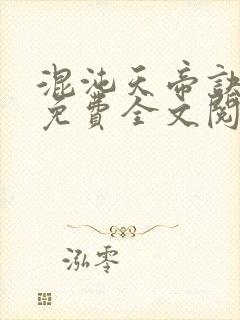 混沌天帝诀
免費全文閱
泓零